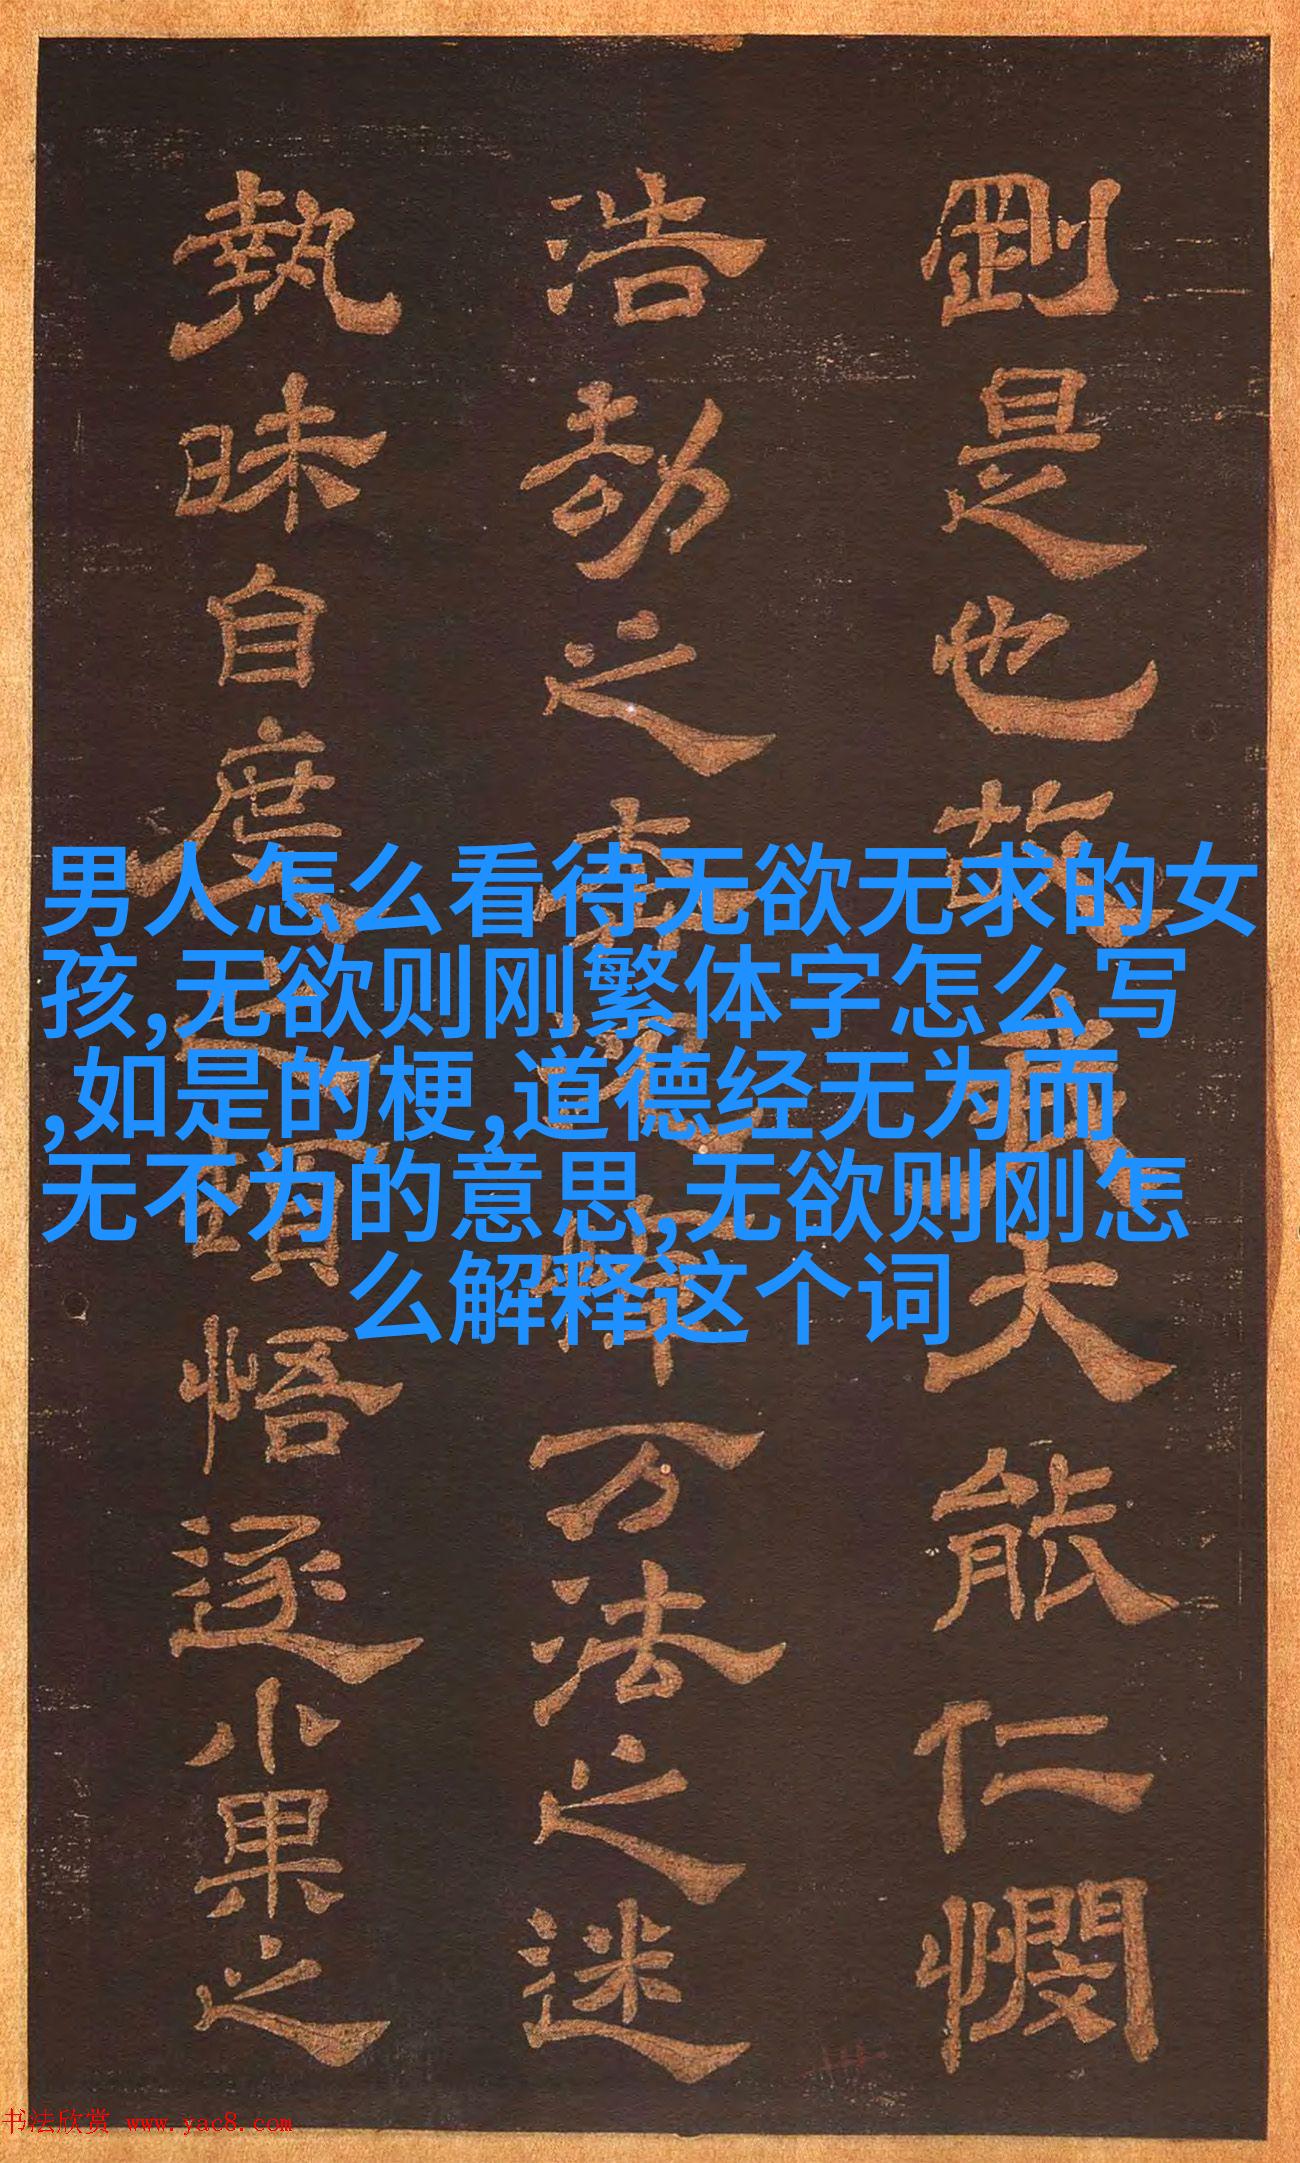 剛是也故我大能仁憫
浩劫之
万法之迷
執昧自度
悟逐小果之
男人怎么看待无欲无求的女
孩,无欲则刚繁体字怎么写
,如是的梗,道德经无为而
无不为的意思,无欲则刚怎
么解释这个词
书法欣赏 www.yac8.com